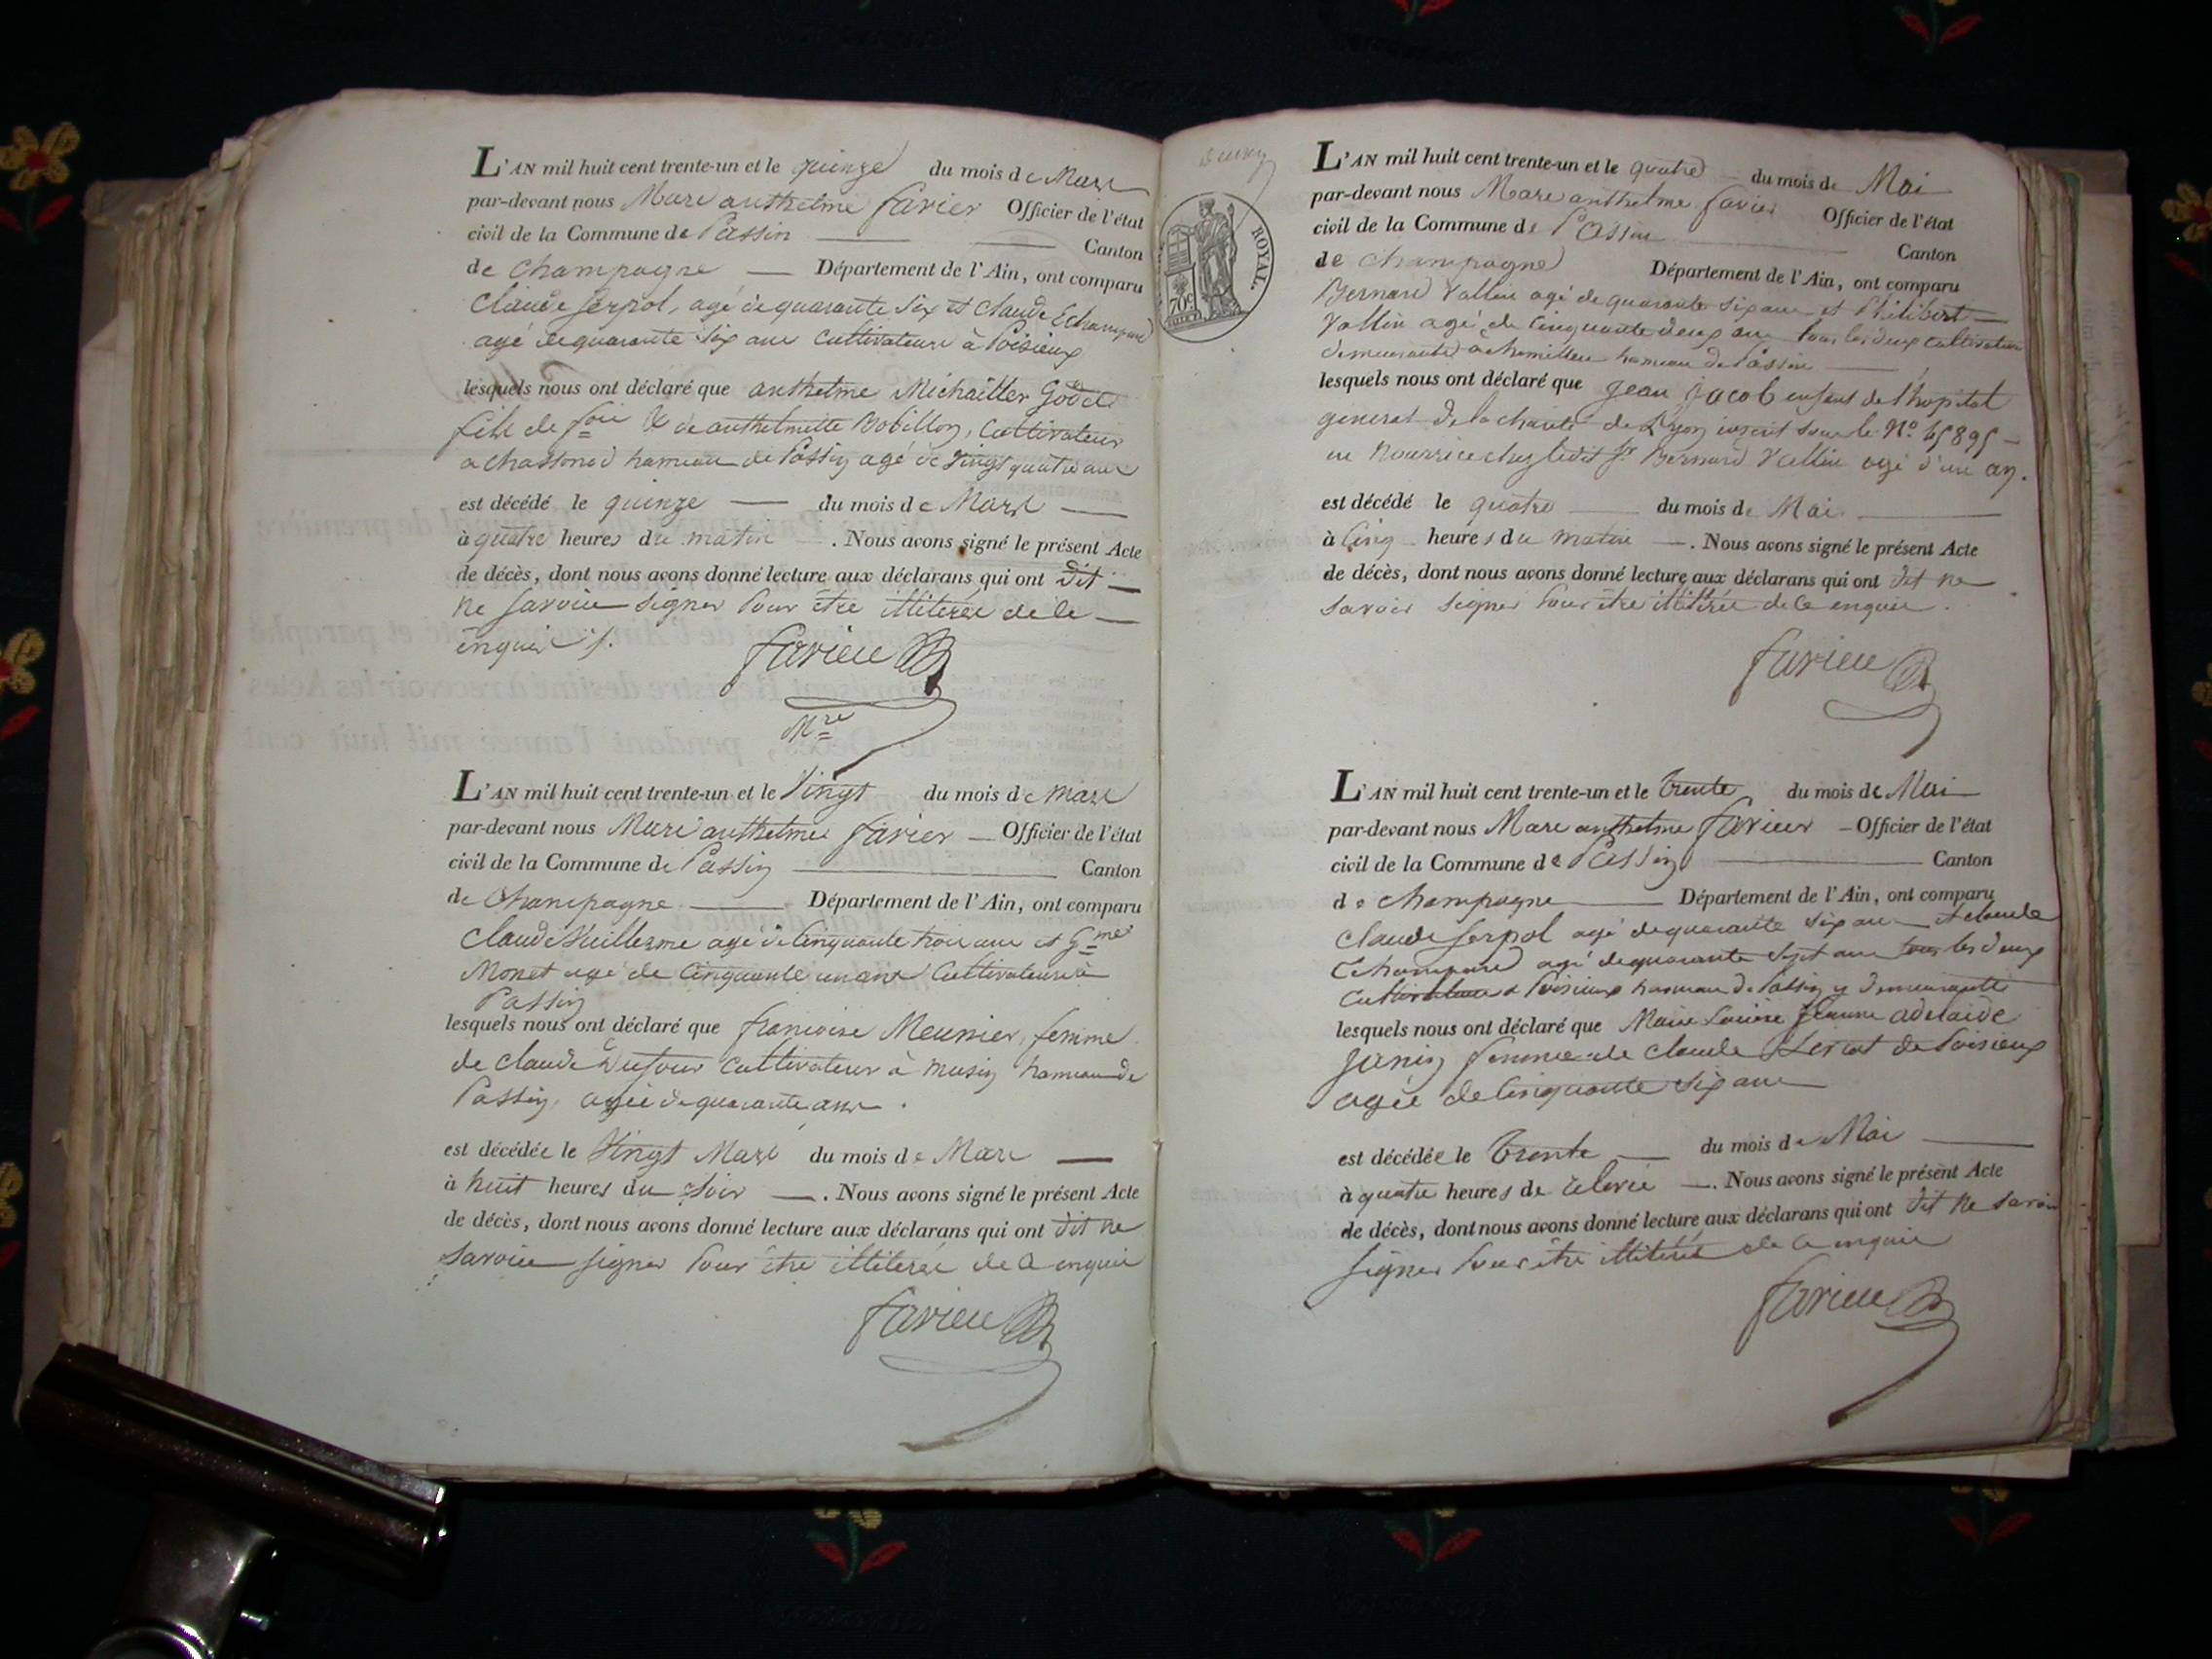 L'AN mil huit cent trente-un et le quinze du mois de Mars
par-devant nous Marc anthelme favier Officier de l'état
civil de la Commune de Passin Canton
de Champagne Département de l'Ain, ont comparu
Claude Serpol, agé de quarante six et Claude Echampard
agé de quarante six ans cultivateurs à Poisieux
lesquels nous ont déclaré que anthelme Michaillier Godet
fils de & de anthelmette Bobillon, Cultivateur
a chassonod hameau de Passin agé de vingt quatre ans
est décédé le quinze du mois de Mars
à quatre heures du matin . Nous avons signé le présent Acte
de décès, dont nous avons donné lecture aux déclarans qui ont dit
ne savoir signer pour être illiteré de le
enquis
favier
Mre
L'AN mil huit cent trente-un et le Vingt du mois de mars
par-devant nous Marc anthelme favier Officier de l'état
civil de la Commune de Passin Canton
de Champagne Département de l'Ain, ont comparu
Claude Vuillerme agé de Cinquante trois ans et Gme
Monet agé de Cinquante un ans Cultivateurs à
Passin
lesquels nous ont déclaré que francoise Meunier, femme
de Claude Dufour Cultivateur à musin hameau de
Passin, agée de quarante ans.
est décédée le Vingt Mars du mois de Mars
à huit heures du soir . Nous avons signé le présent Acte
de décès, dont nous avons donné lecture aux déclarans qui ont dit ne
savoir signer pour être illiteré de ce enquis
favier
ROYAL.
70c
L'AN mil huit cent trente-un et le quatre du mois de Mai
par-devant nous Marc anthelme favier Officier de l'état
civil de la Commune de Passin Canton
de Champagne Département de l'Ain, ont comparu
Bernard Vallin agé de quarante six ans et Philibert
Vallin agé de cinquante deux ans tous les deux cultivateurs
demeurants à chemillieu hameau de Passin
lesquels nous ont déclaré que Jean Jacob enfant de l'hopital
general de la charité de Lyon inscrit sous le No 45895
en Nourrice chez ledit Sr Bernard Vallin agé d'un an.
est décédé le quatre du mois de Mai
à Cinq heures du matin . Nous avons signé le présent Acte
de décès, dont nous avons donné lecture aux déclarans qui ont dit ne
savoir signer pour être illitéré de ce enquis.
favier
L'AN mil huit cent trente-un et le trente du mois de Mai
par-devant nous Marc anthelme favier Officier de l'état
civil de la Commune de Passin Canton
de Champagne Département de l'Ain, ont comparu
Claude Serpol agé de quarante six ans et claude
Echampard agé de quarante sept ans tous les deux
Cultivateurs à Poisieux hameau de Passin y demeurants
lesquels nous ont déclaré que Marie Louise Jeanne adelaide
Janin femme de claude de Poisieux
agée de Cinquante six ans
est décédée le trente du mois de Mai
à quatre heures de . Nous avons signé le présent Acte
de décès, dont nous avons donné lecture aux déclarans qui ont dit ne savoir
signer pour être illitéré de ce enquis
favier